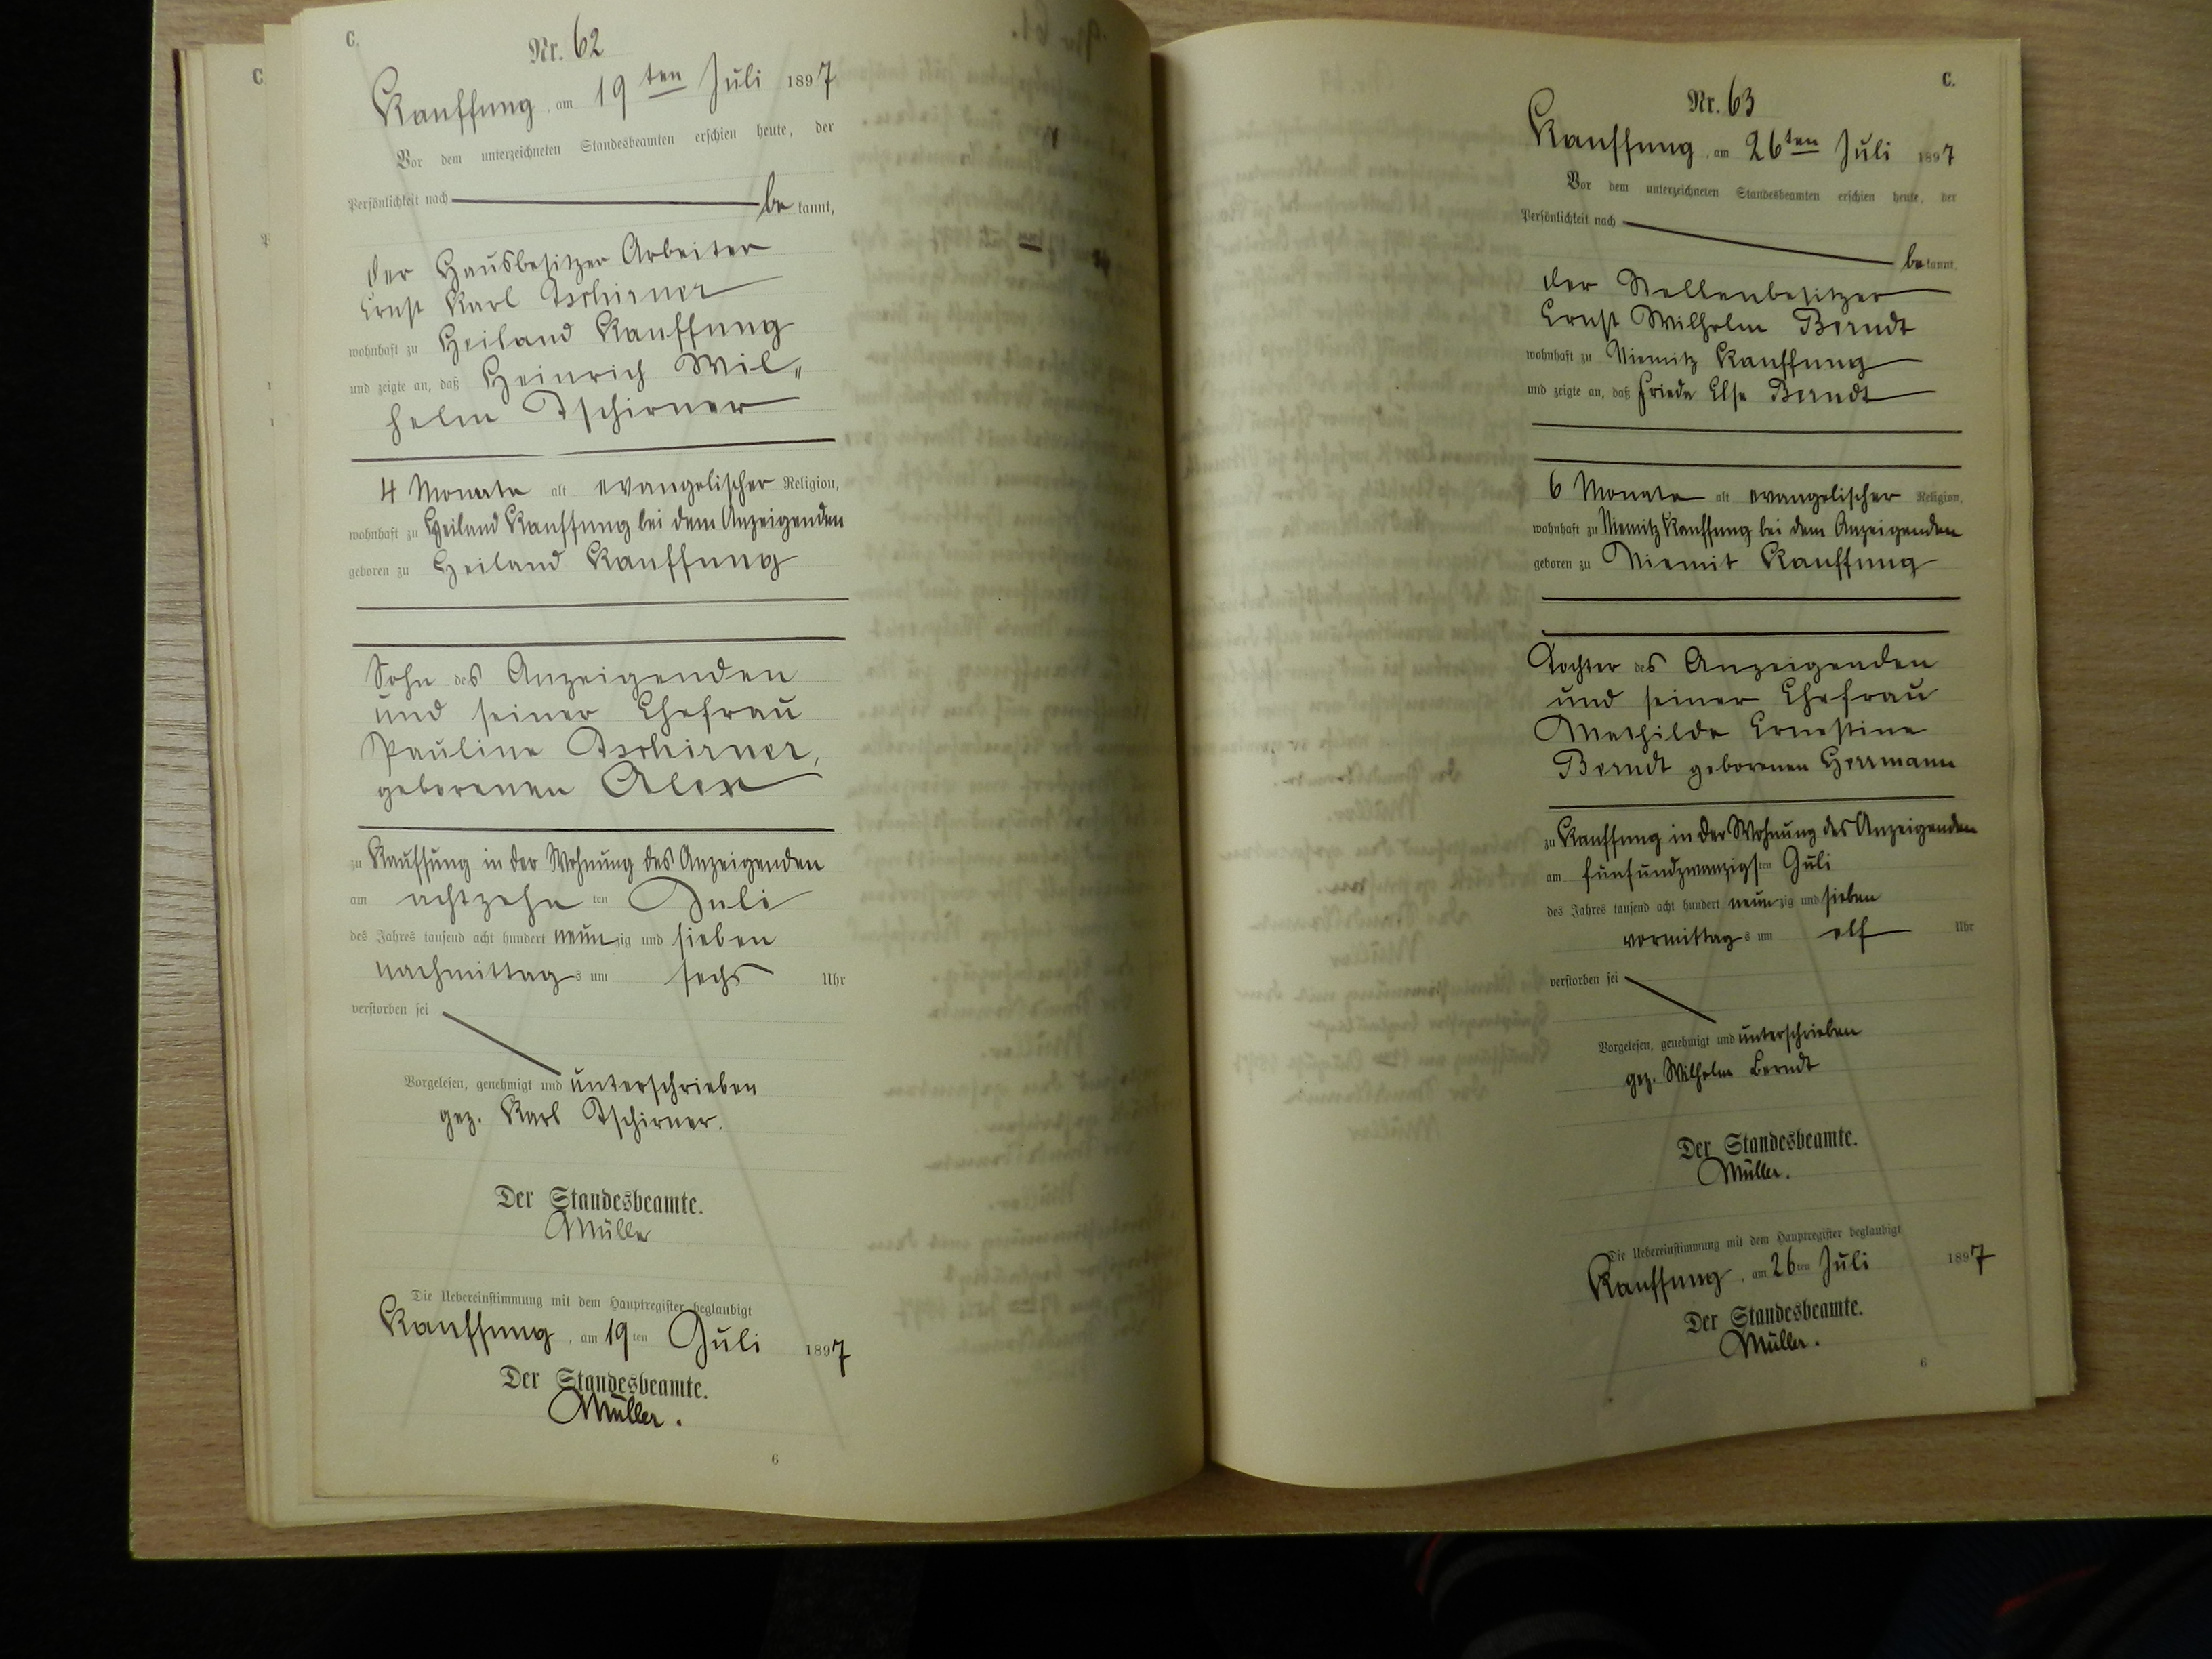 C.
Nr. 62
Kauffung, am 19ten Juli 1897
Vor dem unterzeichneten Standesbeamten erschien heute, der
Persönlichkeit nach be kannt,
der Hausbesitzer Arbeiter
Ernst Karl Tschirner
wohnhaft zu Heiland Kauffung
und zeigte an, daß Heinrich Wil„
helm Tschirner
4 Monate alt evangelischer Religion,
wohnhaft zu Heiland Kauffung bei dem Anzeigenden
geboren zu Heiland Kauffung
Sohn des Anzeigenden
und seiner Ehefrau
Pauline Tschirner,
geborenen Alex
zu Kauffung in der Wohnung des Anzeigenden
am achtzehn ten Juli
des Jahres tausend acht hundert neunzig und sieben
nachmittags um sechs Uhr
verstorben sei
Vorgelesen, genehmigt und unterschrieben
gez. Karl Tschirner.
Der Standesbeamte.
Müller
Die Uebereinstimmung mit dem Hauptregister beglaubigt
Kauffung, am 19ten Juli 1897
Der Standesbeamte.
Müller.
6
C.
Nr. 63
Kauffung, am 26ten Juli 1897
Vor dem unterzeichneten Standesbeamten erschien heute, der
Persönlichkeit nach
be kannt,
der Stellenbesitzer
Ernst Wilhelm Berndt
wohnhaft zu Niemitz Kauffung
und zeigte an, daß Frieda Else Berndt
6 Monate alt evangelischer Religion,
wohnhaft zu Niemitz Kauffung bei dem Anzeigenden
geboren zu Niemit Kauffung
Tochter des Anzeigenden
und seiner Ehefrau
Mathilde Ernestine
Berndt geborenen Herrmann
zu Kauffung in der Wohnung des Anzeigenden
am fünfundzwanzigsten Juli
des Jahres tausend acht hundert neunzig und sieben
vormittags um elf Uhr
verstorben sei
Vorgelesen, genehmigt und unterschrieben
gez. Wilhelm Berndt
Der Standesbeamte.
Müller.
Die Uebereinstimmung mit dem Hauptregister beglaubigt
Kauffung, am 26ten Juli 1897
Der Standesbeamte.
Müller.
6